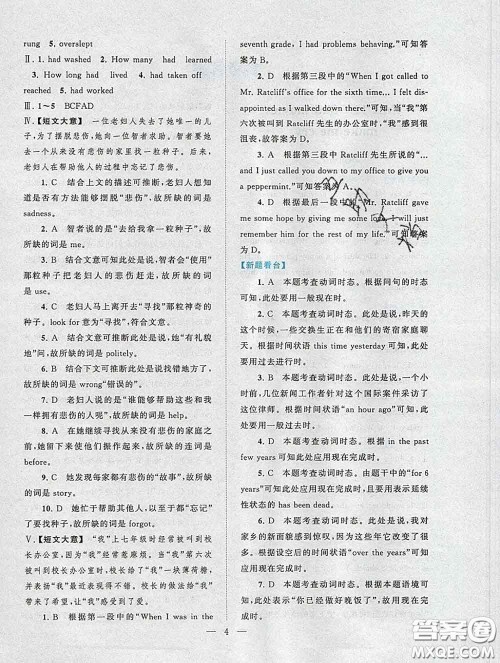 rung　5. overslept
Ⅱ. 1. had washed　2. How many　had　learned
3. How long had　lived　4. had taken off
reached　5. had worked
Ⅲ. 1～5　BCFAD
Ⅳ.【短文大意】　一位老妇人失去了她唯一的儿
子，为了摆脱悲伤，她向一位智者求助。智者让她
去一个没有悲伤的家里找一粒种子。后来，老妇
人在帮助他人的过程中忘记了悲伤。
1. C　结合上文的描述可推断，老妇人想知
道是否有方法能够摆脱“悲伤”，故所缺的词是
sadness。
2. A　智者说的是“去给我拿一粒种子”，故
所缺的词是bring。
3. D　结合上文可推断此处是说，智者会“使
用”那粒种子把老妇人的悲伤赶走，故所缺的词
是use。
4. C　老妇人马上离开去“寻找”那粒神奇的
种子。look for 意为“寻找”，符合文意。
5. A　结合文意可推断此处是说，她“有礼貌
地”问，故所缺的词是politely。
6. B　结合下文可推断此处是说，她来错地
方了，故所缺的词是 wrong“错误的”。
7. D　老妇人想的是“谁能够帮助这些和我
一样拥有悲伤的不幸的人呢”，故所缺的词是
help。
8. B　在她继续去寻找从未来没有悲伤的家庭之
前，她试图使他们振作起来，故所缺的词是
before。
9. C　她发现每家都有悲伤的“故事”，故所缺
的词是 story。
10. D　她忙于帮助其他人，以至于“忘记”了
要去找那粒种子，故所缺的词是forgot。
Ⅴ.【短文大意】　“我”上七年级时经常被叫到校
长办公室，因为“我”经常惹麻烦。当“我”第六次
被叫到校长办公室时，校长给了“我”一块薄荷糖，
并表扬“我”拼写测验成绩不错。校长的做法给“我”
带来了希望，让“我”感受到了爱。
1. B　根据第一段中的“When I was in the
seventh grade, I had problems behaving.”可知答
案为 B。
2. D　根据第三段中的“When I got called to
Mr. Ratcliff's office for the sixth time... I felt dis-
appointed as I walked down there.”可知，当“我”第
六次被叫到 Ratcliff 先生的办公室时，“我”感到很
沮丧，故答案为 D。
3. A　根据第三段中 Ratcliff 先生所说的“...
and I just called you down to my office to give you
a peppermint.”可知答案为 A。
4. D　根据最后一段中的“Mr. Ratcliff gave
me some hope by giving me some love. I will just
remember him for the rest of my life.”可知答案
为 D。
【新题看台】
1. A　本题考查动词时态。根据问句的时态
可知，此处要用一般现在时。
2. D　本题考查动词时态。此处是说，昨天的
这个时候，一些交换生正在他们的寄宿家庭聊
天。根据时间状语 this time yesterday 可知，此处
要用过去进行时。
3. B　本题考查动词时态。此处是说，一个小
时前，几位新闻工作者针对这个国际案件采访了
这位律师。根据时间状语“an hour ago”可知，此处
要用一般过去时。
4. D　本题考查动词时态。根据 in the past
few years 可知此处应用现在完成时。
5. D　本题考查动词时态。由题干中的“for 6
years”可知此处应用现在完成时，且可延续性
状态的是 has been dead。
6. D　本题考查动词时态。此处是说，我对
家乡的新面貌感到惊叹，因为这些年它改变了很
多。根据设空后的时间状语“over the years”可知
此处应用现在完成时。
7. D　本题考查动词时态。根据答语中的
“现在感谢你”可知，前句表示“你已经做好晚饭了”，故用
现在完成时。
— 4 —
答案圈
MXQE.COM